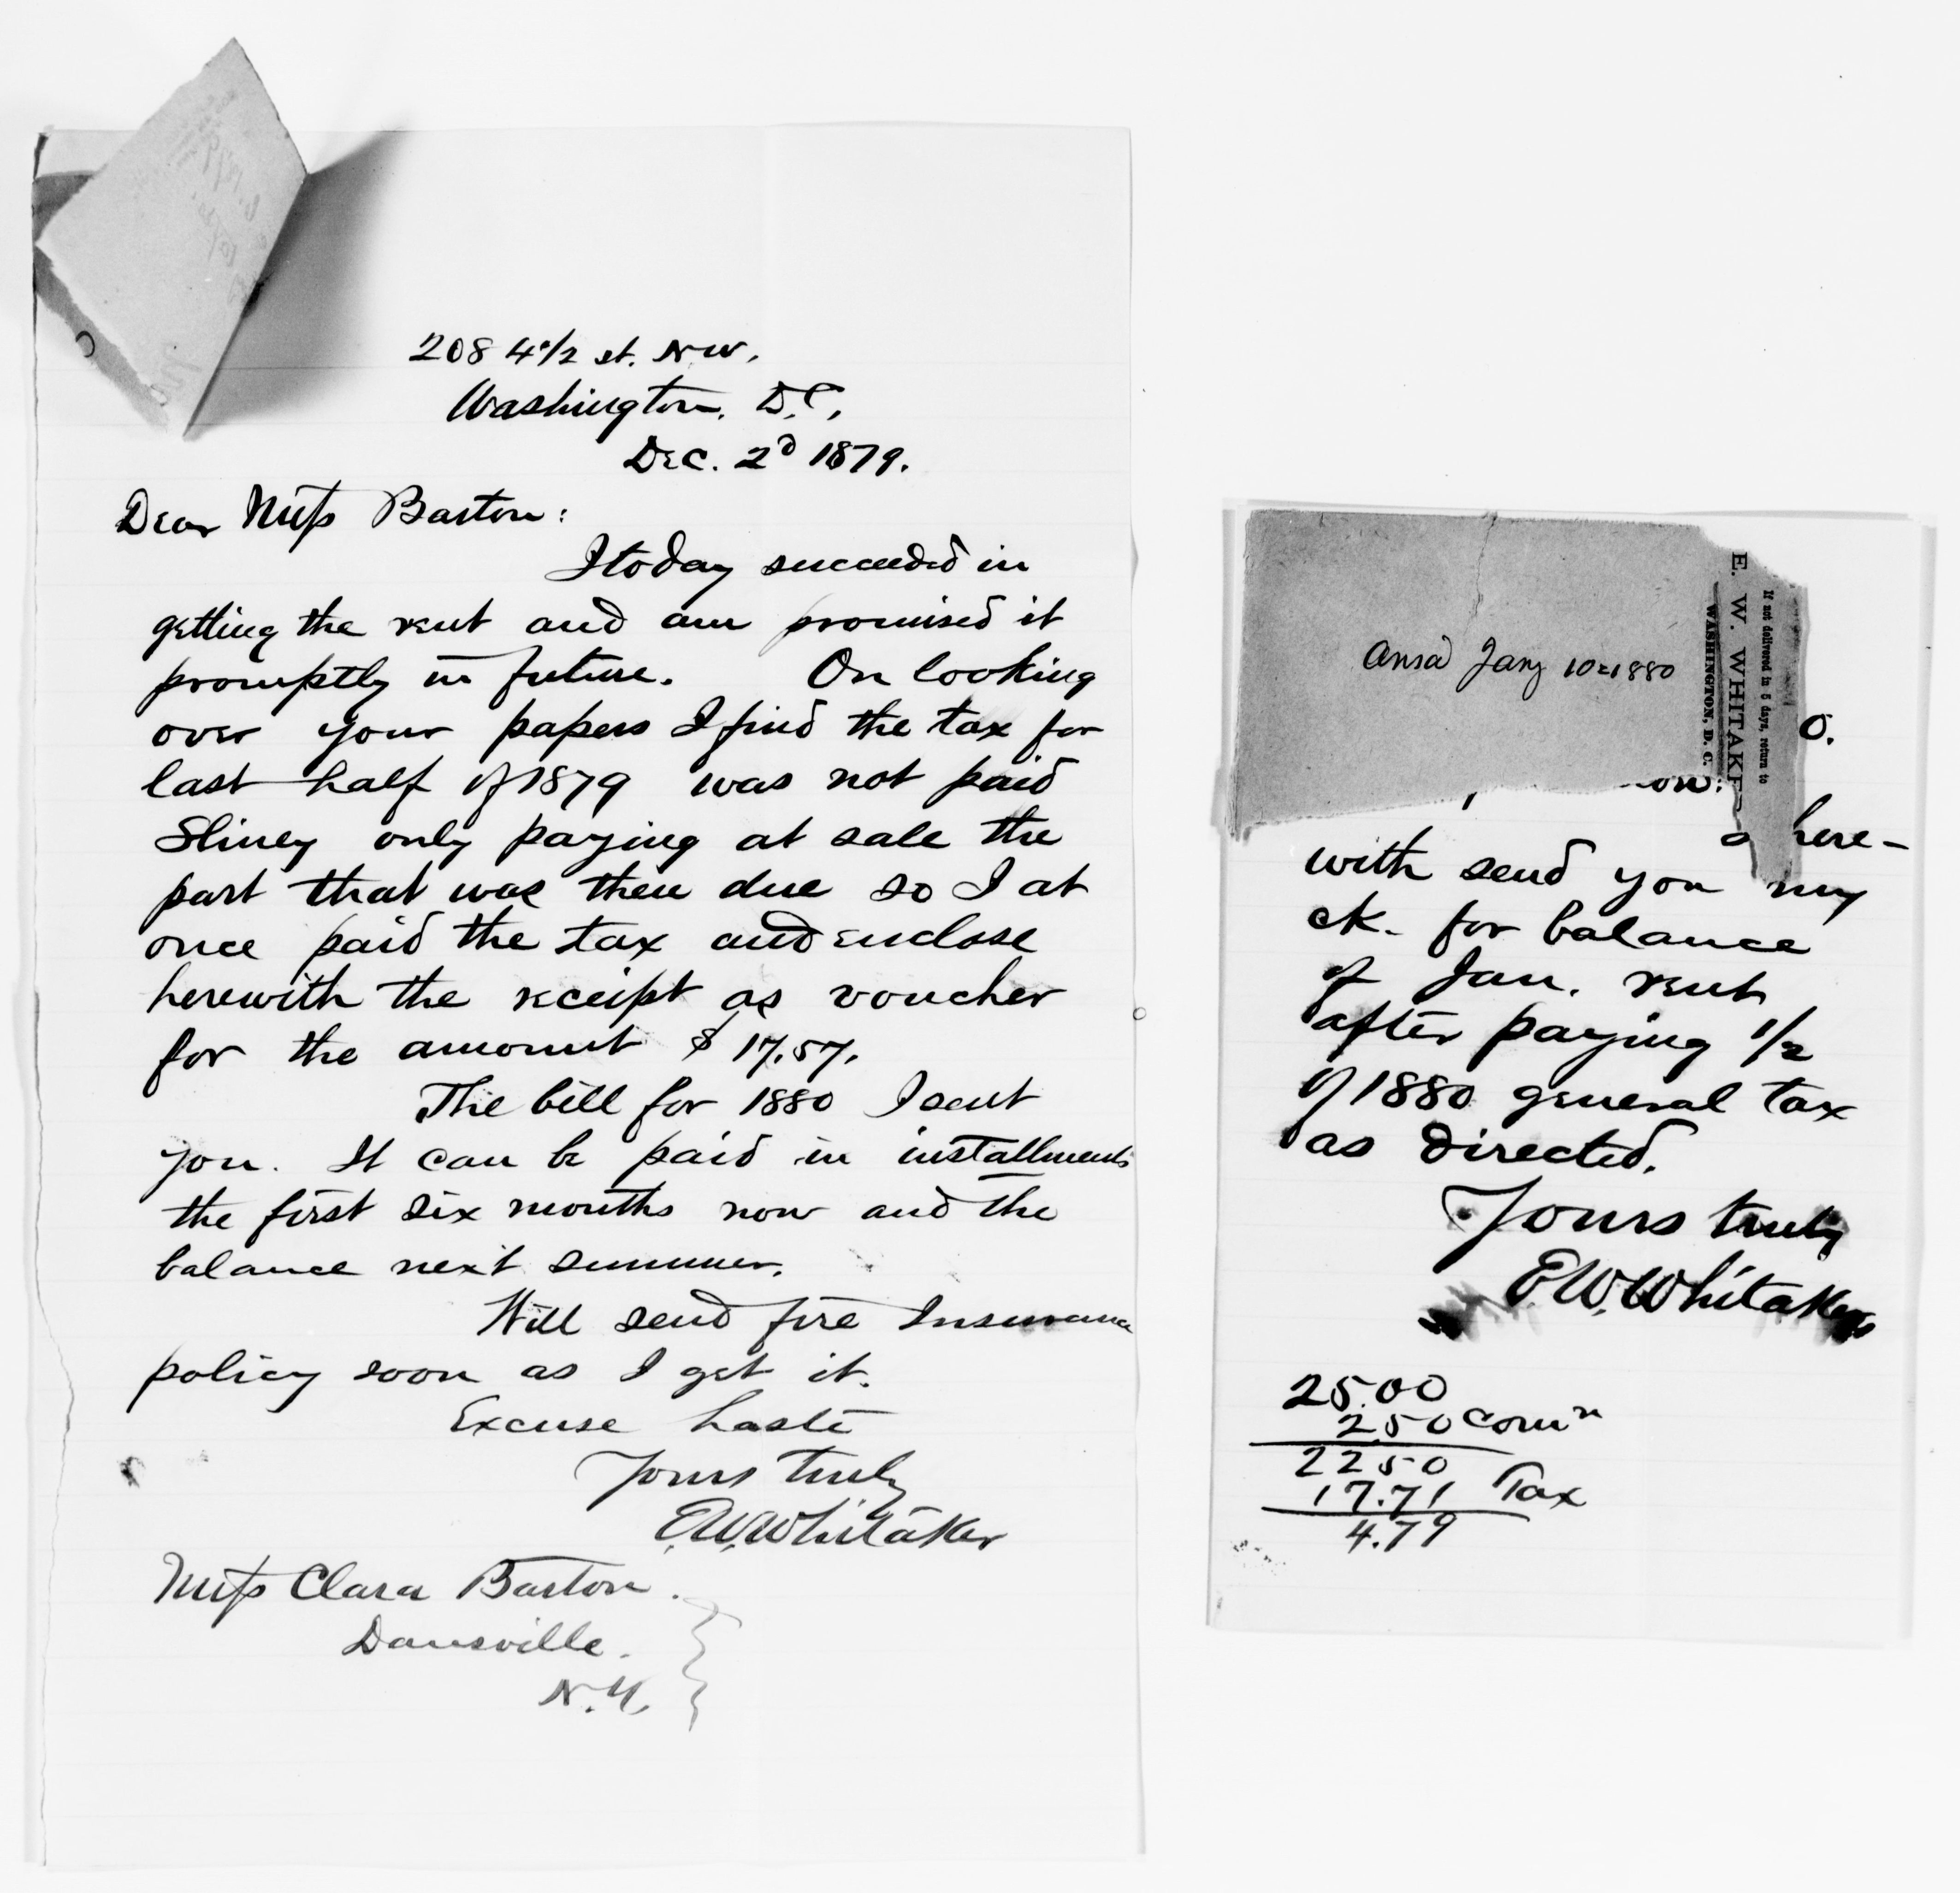 208 4½ st. N.W.
Washington. D.C.
Dec. 2d 1879.
Dear Miss Barton:
I today succeeded in
getting the rent and am promised it
promptly in future. On looking
over your papers I find the tax for
last half of 1879 was not paid
Sliney only paying at sale the
part that was then due so I at
once paid the tax and enclose
herewith the receipt as voucher
for the amount $17.57.
The bill for 1880 I sent
you. It can be paid in installments
the first six months now and the
balance next summer.
Will send fire Insurance
policy soon as I get it.
Excuse haste
Yours truly
E.W. Whitaker
Miss Clara Barton.
Dansville.
N.Y.
Ansd Jany 10=1880
If not delivered in 5 days, return to
E. W. WHITAKE
WASHINGTON, D. C.
0.
on:
here-
with send you my
ck. for balance
of Jan. rent
after paying 1/2
of 1880 general tax
as directed.
Yours truly
E.W. Whitaker
25.00
2.50 Comn
22.50
17.71 Tax
4.79